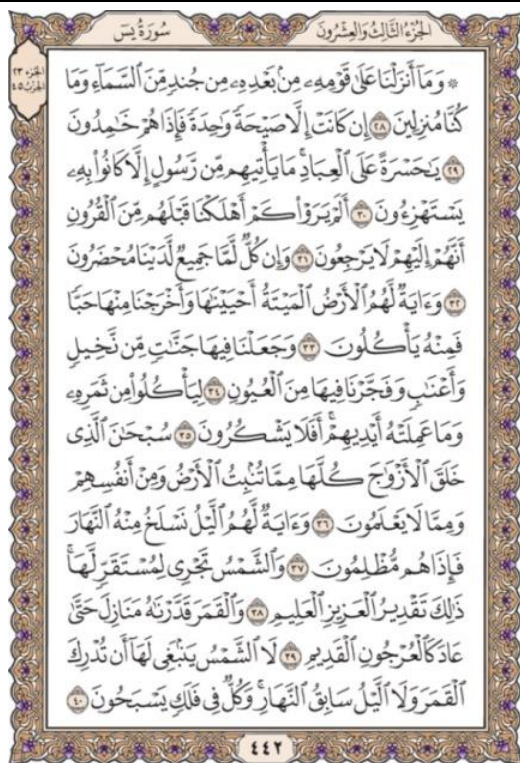 الجزء الثالث والعشرون
سورة يس
الجزء ٢٣
الحزب ٤٥
۞ وَمَآ أَنزَلۡنَا عَلَىٰ قَوۡمِهِۦ مِنۢ بَعۡدِهِۦ مِن جُندٖ مِّنَ ٱلسَّمَآءِ وَمَا
كُنَّا مُنزِلِينَ ٢٨ إِن كَانَتۡ إِلَّا صَيۡحَةٗ وَٰحِدَةٗ فَإِذَا هُمۡ خَٰمِدُونَ
٢٩ يَٰحَسۡرَةً عَلَى ٱلۡعِبَادِۚ مَا يَأۡتِيهِم مِّن رَّسُولٍ إِلَّا كَانُواْ بِهِۦ
يَسۡتَهۡزِءُونَ ٣٠ أَلَمۡ يَرَوۡاْ كَمۡ أَهۡلَكۡنَا قَبۡلَهُم مِّنَ ٱلۡقُرُونِ
أَنَّهُمۡ إِلَيۡهِمۡ لَا يَرۡجِعُونَ ٣١ وَإِن كُلّٞ لَّمَّا جَمِيعٞ لَّدَيۡنَا مُحۡضَرُونَ
٣٢ وَءَايَةٞ لَّهُمُ ٱلۡأَرۡضُ ٱلۡمَيۡتَةُ أَحۡيَيۡنَٰهَا وَأَخۡرَجۡنَا مِنۡهَا حَبّٗا
فَمِنۡهُ يَأۡكُلُونَ ٣٣ وَجَعَلۡنَا فِيهَا جَنَّٰتٖ مِّن نَّخِيلٖ
وَأَعۡنَٰبٖ وَفَجَّرۡنَا فِيهَا مِنَ ٱلۡعُيُونِ ٣٤ لِيَأۡكُلُواْ مِن ثَمَرِهِۦ
وَمَا عَمِلَتۡهُ أَيۡدِيهِمۡۚ أَفَلَا يَشۡكُرُونَ ٣٥ سُبۡحَٰنَ ٱلَّذِي
خَلَقَ ٱلۡأَزۡوَٰجَ كُلَّهَا مِمَّا تُنۢبِتُ ٱلۡأَرۡضُ وَمِنۡ أَنفُسِهِمۡ
وَمِمَّا لَا يَعۡلَمُونَ ٣٦ وَءَايَةٞ لَّهُمُ ٱلَّيۡلُ نَسۡلَخُ مِنۡهُ ٱلنَّهَارَ
فَإِذَا هُم مُّظۡلِمُونَ ٣٧ وَٱلشَّمۡسُ تَجۡرِي لِمُسۡتَقَرّٖ لَّهَاۚ
ذَٰلِكَ تَقۡدِيرُ ٱلۡعَزِيزِ ٱلۡعَلِيمِ ٣٨ وَٱلۡقَمَرَ قَدَّرۡنَٰهُ مَنَازِلَ حَتَّىٰ
عَادَ كَٱلۡعُرۡجُونِ ٱلۡقَدِيمِ ٣٩ لَا ٱلشَّمۡسُ يَنۢبَغِي لَهَآ أَن تُدۡرِكَ
ٱلۡقَمَرَ وَلَا ٱلَّيۡلُ سَابِقُ ٱلنَّهَارِۚ وَكُلّٞ فِي فَلَكٖ يَسۡبَحُونَ ٤٠
٤٤٢